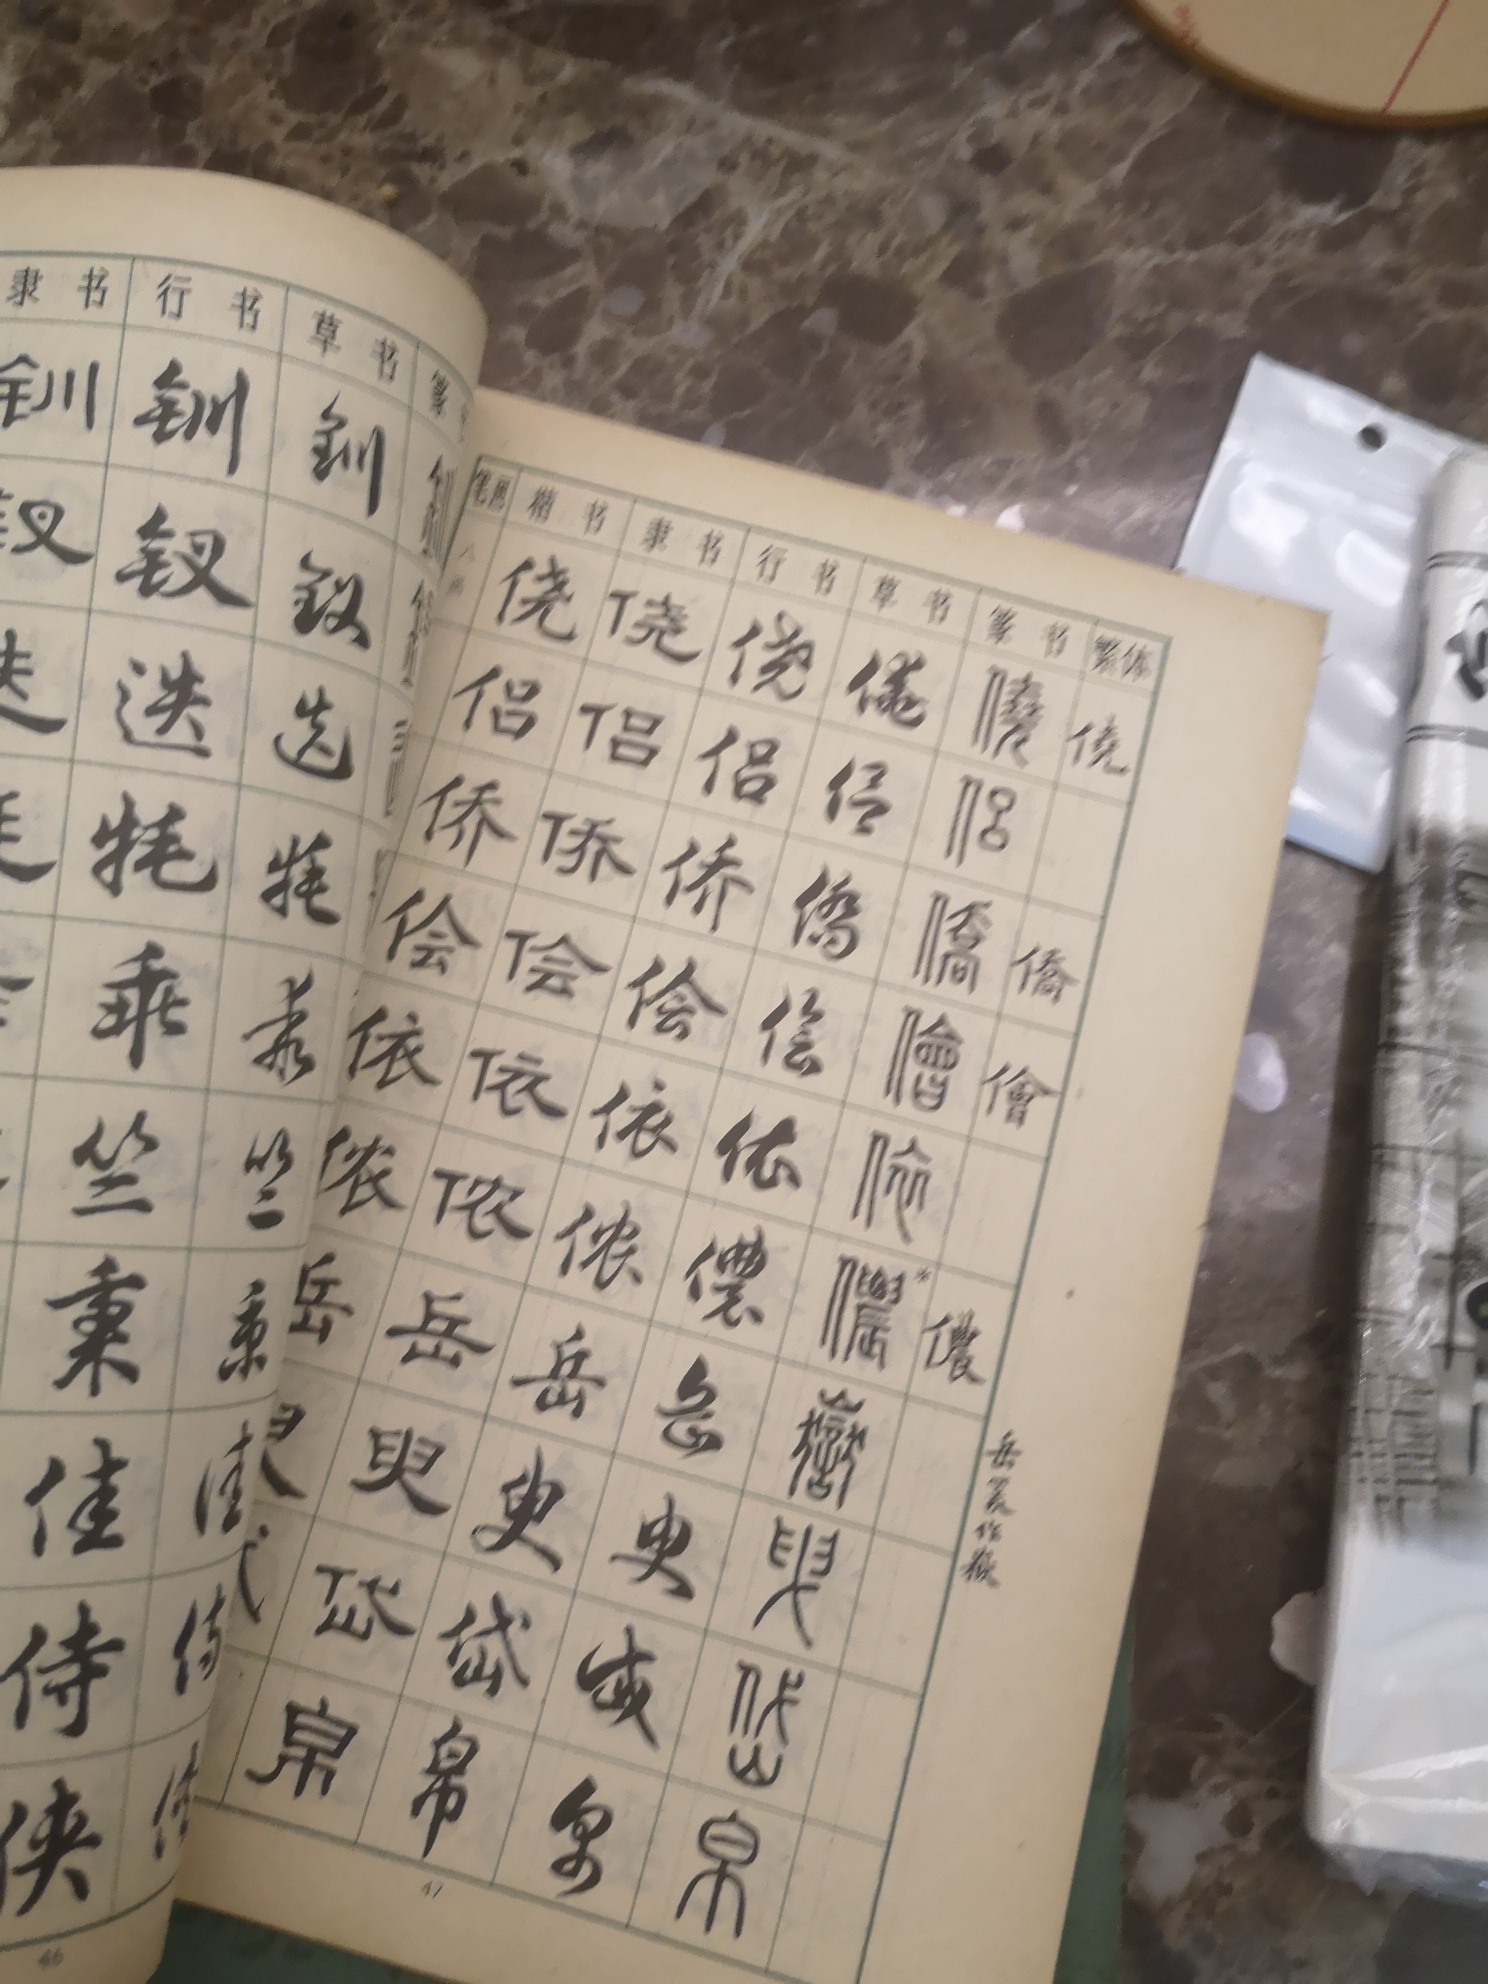 隶书 行书 草书 篆
钏 钏 钏
钗 钗 钗
迭 迭 迭
牦 牦 牦
乖 乖
竺 竺
秉 秉
佳 佳
侍 侍
侠 侠
46
笔画 楷书 隶书 行书 草书 篆书 繁体
八画 侥 侥 侥 侥 僥 僥
侣 侣 侣 侣 侣
侨 侨 侨 僑 僑 僑
侩 侩 侩 侩 儈 儈
依 依 依 依 依
侬 侬 侬 儂 儂* 儂
岳 岳 岳 岳 嶽
臾 臾 臾 臾
岱 岱 岱 岱
帛 帛 帛 帛
岳篆作嶽
47